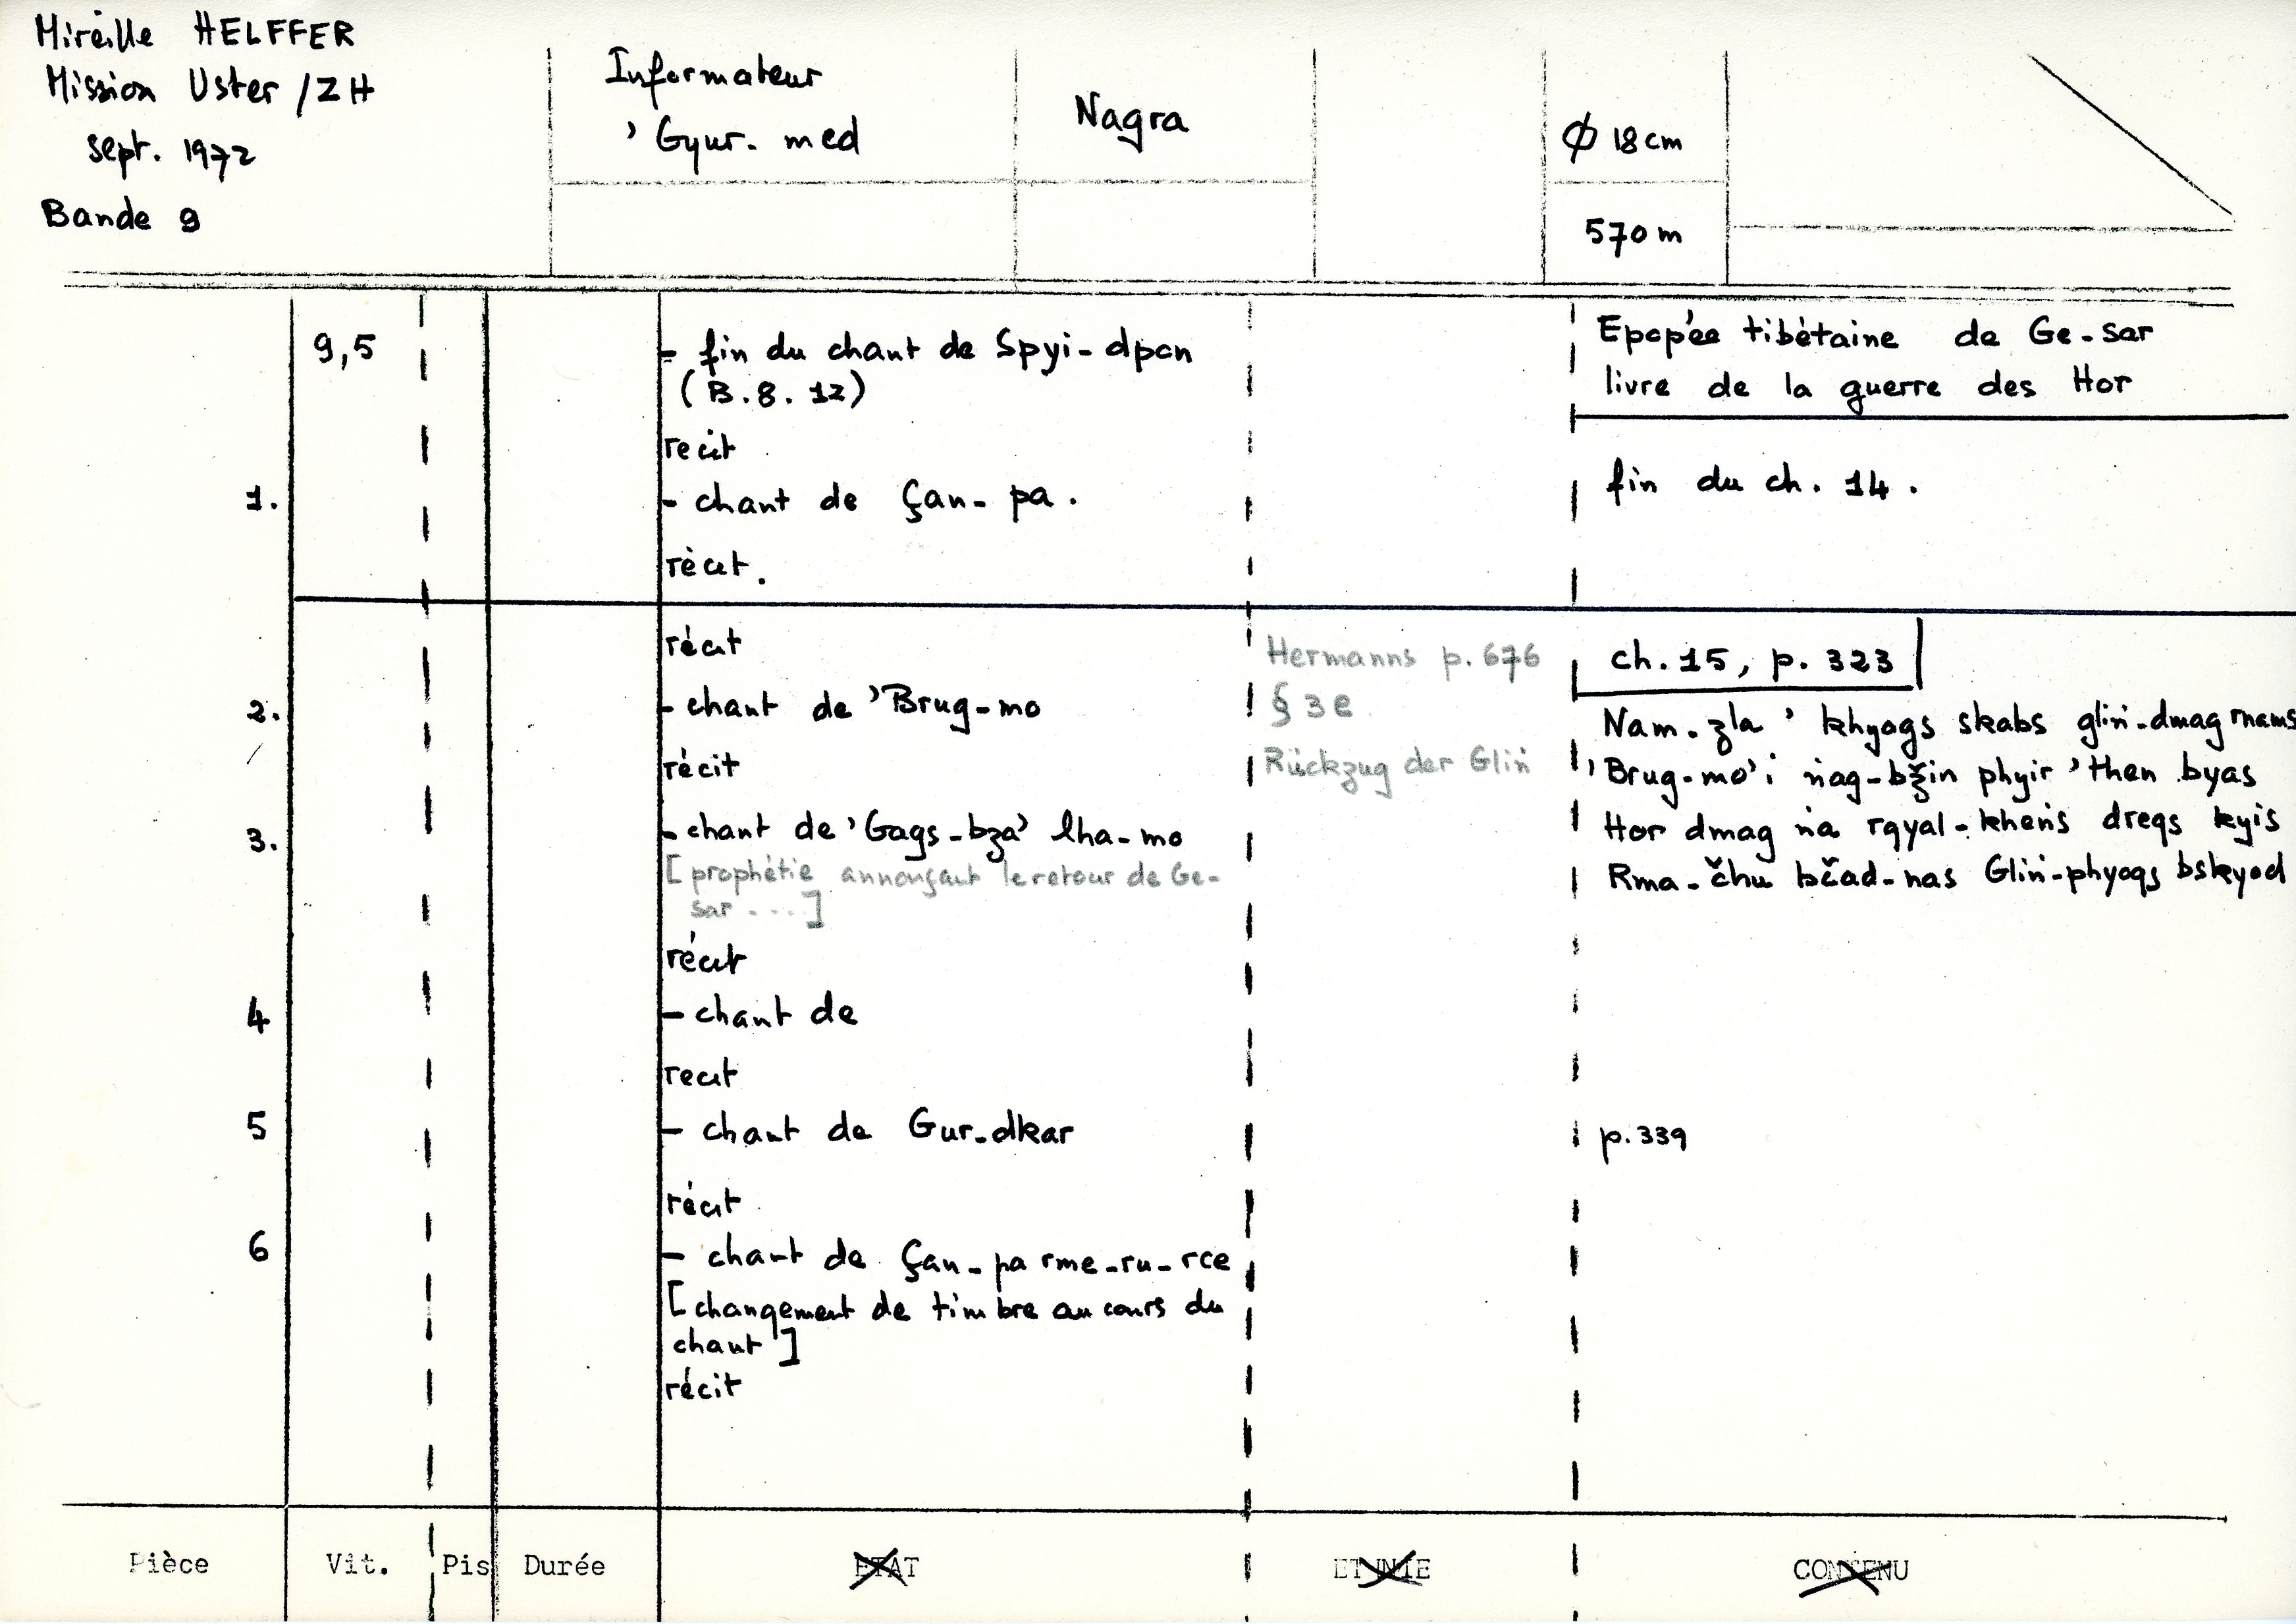 Mireille HELFFER
Mission Uster /ZH
sept. 1972
Bande 9
Informateur
'Gyur. med
Nagra
Φ 18 cm
570 m
9,5
- fin du chant de Spyi-dpon
(B.8.12)
Epopée tibétaine de Ge-sar
livre de la guerre des Hor
recit
1.
- chant de Çan-pa.
fin du ch. 14.
récit.
récit
Hermanns p. 676
ch. 15, p. 323
2.
- chant de 'Brug-mo
§ 3e
Nam-zla 'khyags skabs gliṅ-dmag rnams
récit
Rückzug der Gliṅ
'Brug-mo'i ṅag-bžin phyir 'then byas
3.
- chant de 'Gags-bza' lha-mo
Hor dmag ṅa rgyal-kheṅs dregs kyis
[prophétie annonçant le retour de Ge-
sar ....]
Rma-čhu bčad-nas Gliṅ-phyogs bskyod
récit
4
- chant de
recit
5
- chant de Gur-dkar
p. 339
récit
6
- chant de Çan-pa rme-ru-rce
[changement de timbre au cours du
chant]
récit
Pièce
Vit.
Pis
Durée
ETAT
ETHNIE
CONTENU